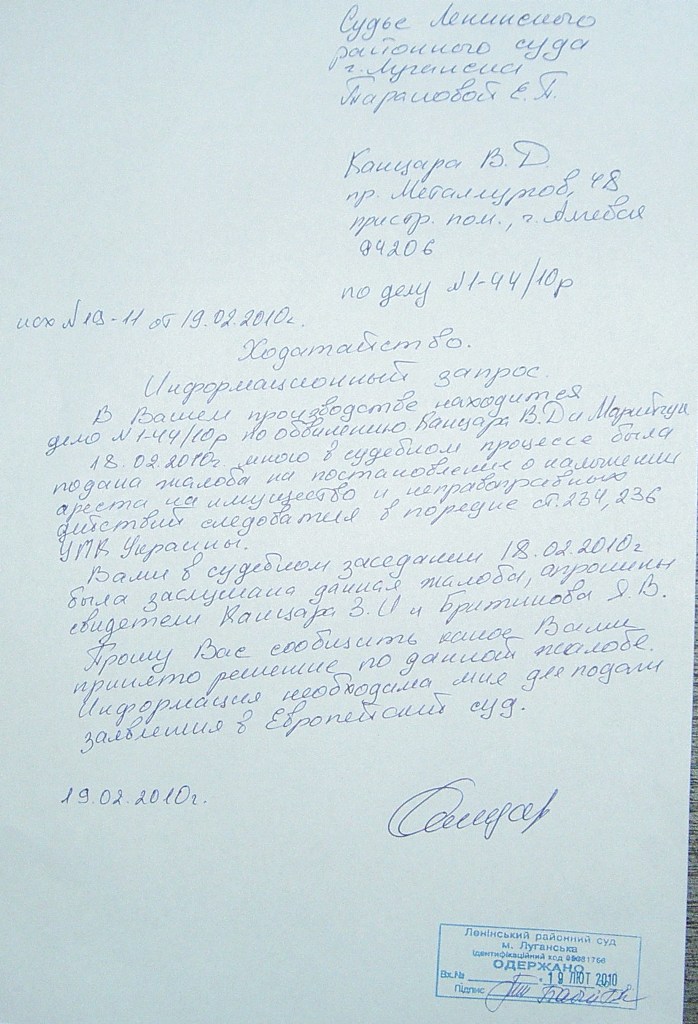 Судье Ленинского
районного суда
г. Луганска
Тарановой Е. П.
Канцара В. Д.
пр. Металлургов, 48
пристр. пом., г. Алчевск
94206
по делу №1-44/10р
исх №19-11 от 19.02.2010г.
Ходатайство.
Информационный запрос.
В Вашем производстве находится
дело №1-44/10р по обвинению Канцара В.Д и
18.02.2010г. мною в судебном процессе была
подана жалоба на постановление о наложении
ареста на имущество и неправоправных
действий следователя в порядке ст. 234, 236
УПК Украины.
Вами в судебном заседании 18.02.2010г
была заслушана данная жалоба, опрошины
свидетели Канцара З.И и Бритикова Я. В.
Прошу Вас сообщить какое Вами
принято решение по данной жалобе.
Информация необходима мне для подачи
заявления в Европейский суд.
19.02.2010г.
Ленінський районний суд
м. Луганська
Ідентифікаційний код
ОДЕРЖАНО
Вх.№ 19 ЛЮТ 2010
Підпис